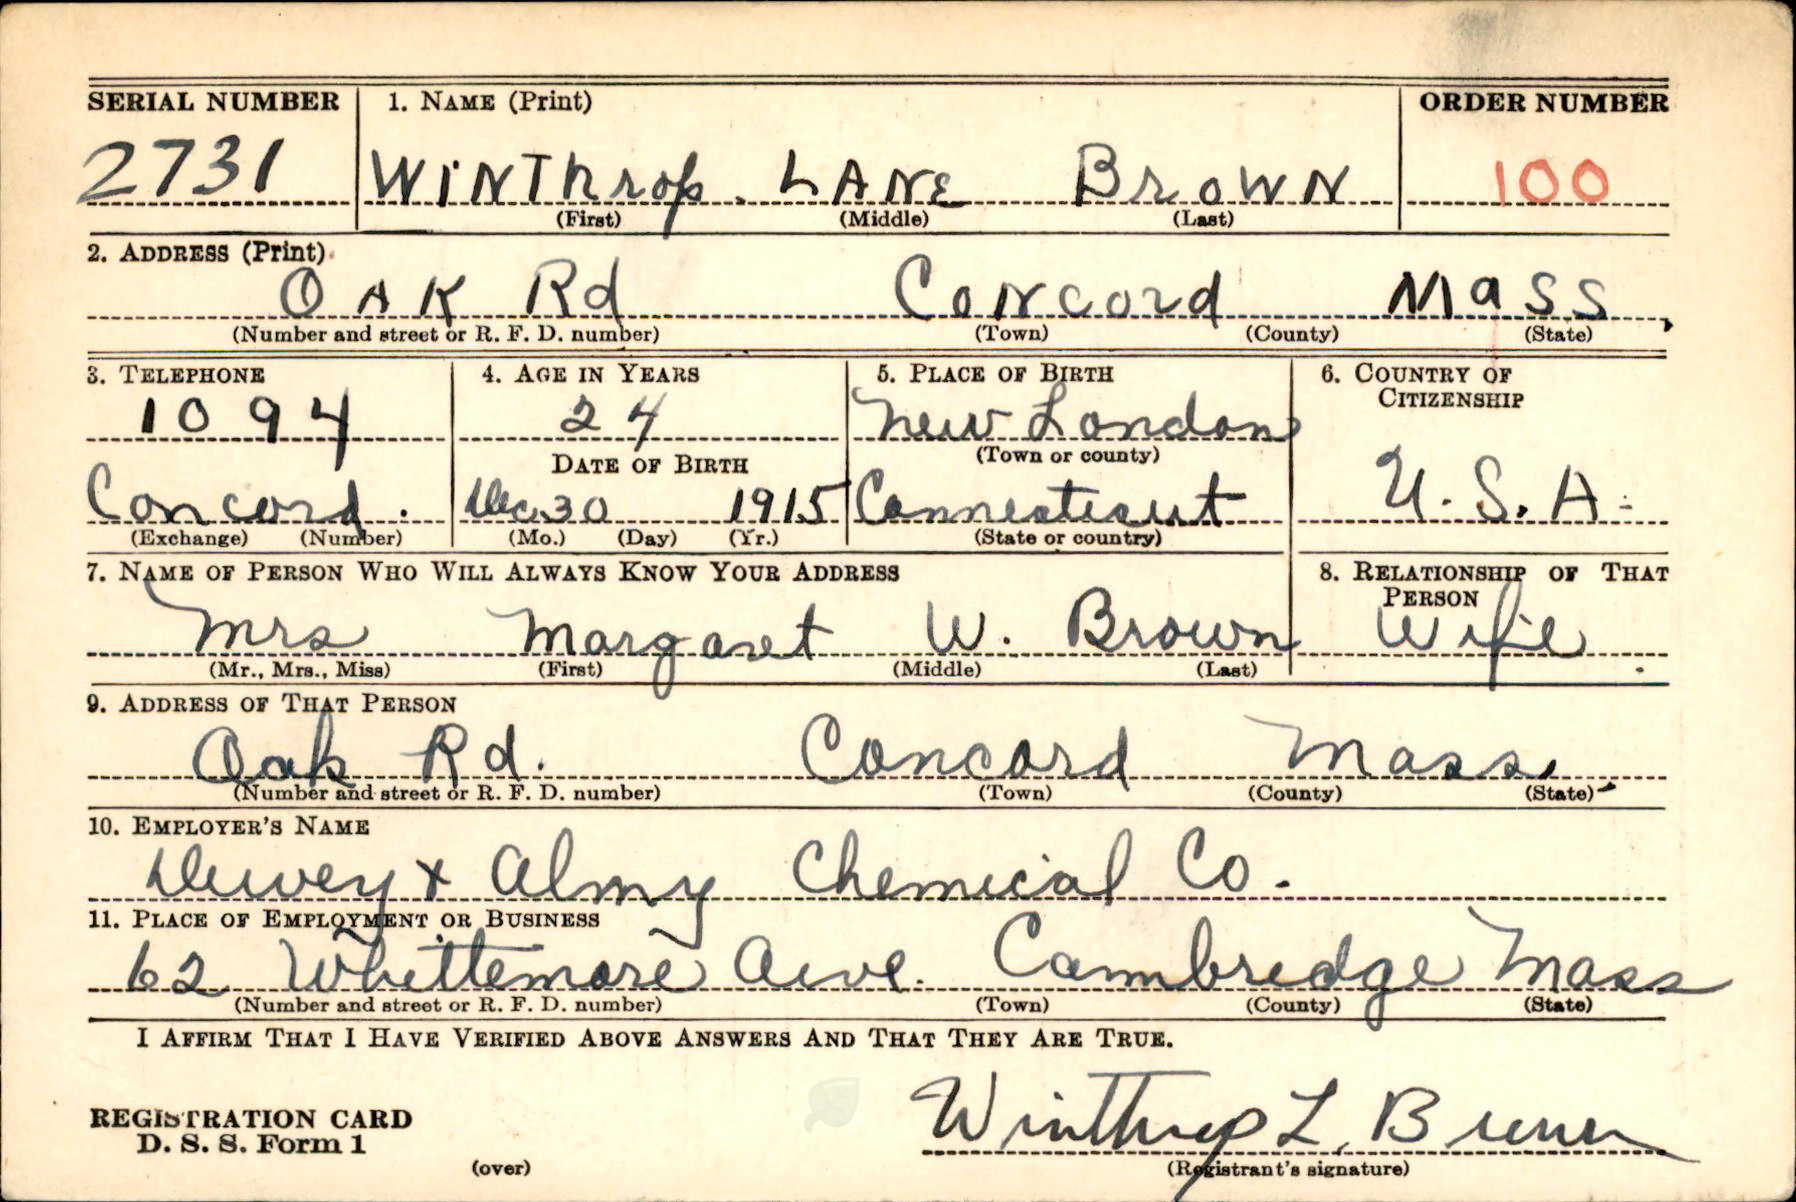 SERIAL NUMBER 1. NAME (Print) ORDER NUMBER
2731 WINThrop. LANE BROWN 100
(First) (Middle) (Last)
2. ADDRESS (Print)
OAK Rd Concord Mass
(Number and street or R. F. D. number) (Town) (County) (State)
3. TELEPHONE 4. AGE IN YEARS 5. PLACE OF BIRTH 6. COUNTRY OF CITIZENSHIP
1094 24 New London
DATE OF BIRTH (Town or county)
Concord. Dec 30 1915 Connecticut U.S.A.
(Exchange) (Number) (Mo.) (Day) (Yr.) (State or country)
7. NAME OF PERSON WHO WILL ALWAYS KNOW YOUR ADDRESS 8. RELATIONSHIP OF THAT PERSON
Mrs Margaret W. Brown Wife
(Mr., Mrs., Miss) (First) (Middle) (Last)
9. ADDRESS OF THAT PERSON
Oak Rd. Concord Mass.
(Number and street or R. F. D. number) (Town) (County) (State)
10. EMPLOYER'S NAME
Dewey + Almy Chemical Co.
11. PLACE OF EMPLOYMENT OR BUSINESS
62 Whittemore Ave. Cambridge Mass
(Number and street or R. F. D. number) (Town) (County) (State)
I AFFIRM THAT I HAVE VERIFIED ABOVE ANSWERS AND THAT THEY ARE TRUE.
REGISTRATION CARD
D. S. S. Form 1 Winthrop L. Brown
(over) (Registrant's signature)